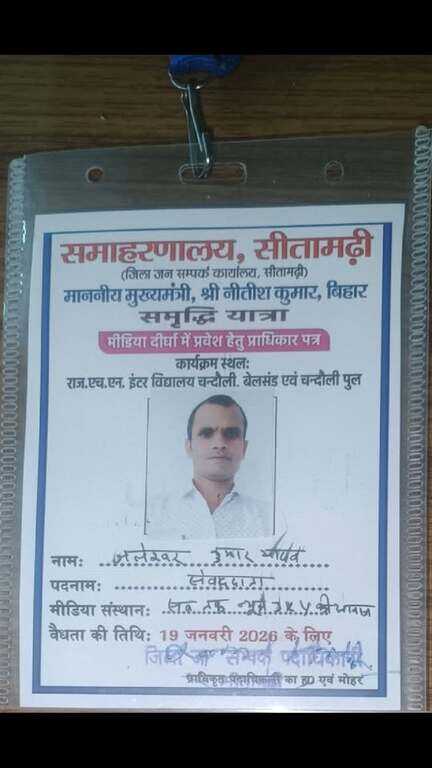 समाहरणालय, सीतामढ़ी
(जिला जन सम्पर्क कार्यालय, सीतामढ़ी)
माननीय मुख्यमंत्री, श्री नीतीश कुमार, बिहार
समृद्धि यात्रा
मीडिया दीर्घा में प्रवेश हेतु प्राधिकार पत्र
कार्यक्रम स्थल:
राज.एच.एन. इंटर विद्यालय चन्दौली, बेलसंड एवं चन्दौली पुल
नाम: जलेश्वर कुमार
पदनाम: संवाददाता
मीडिया संस्थान:
वैधता की तिथि: 19 जनवरी 2026 के लिए
जिला जन सम्पर्क पदाधिकारी
प्राधिकृत पदाधिकारी का ह० एवं मोहर